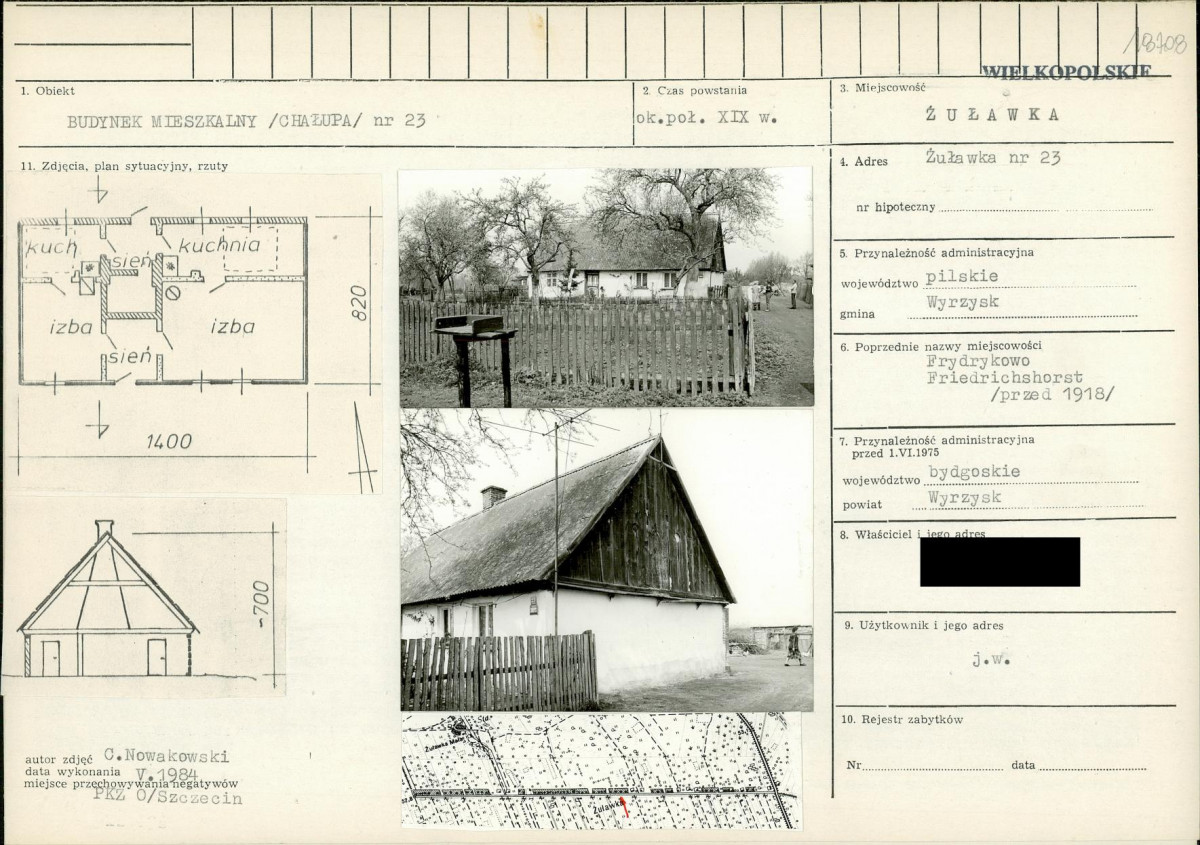 18708
WIELKOPOLSKIE
1. Obiekt
BUDYNEK MIESZKALNY /CHAŁUPA/ nr 23
2. Czas powstania
ok.poł. XIX w.
3. Miejscowość
ŻUŁAWKA
11. Zdjęcia, plan sytuacyjny, rzuty
kuch
sień
kuchnia
izba
izba
sień
820
1400
~700
autor zdjęć C.Nowakowski
data wykonania V.1984
miejsce przechowywania negatywów
PKZ O/Szczecin
Żuławka
4. Adres Żuławka nr 23
nr hipoteczny
5. Przynależność administracyjna
województwo pilskie
gmina Wyrzysk
6. Poprzednie nazwy miejscowości
Frydrykowo
Friedrichshorst
/przed 1918/
7. Przynależność administracyjna
przed 1.VI.1975
województwo bydgoskie
powiat Wyrzysk
8. Właściciel i jego adres
9. Użytkownik i jego adres
j.w.
10. Rejestr zabytków
Nr data